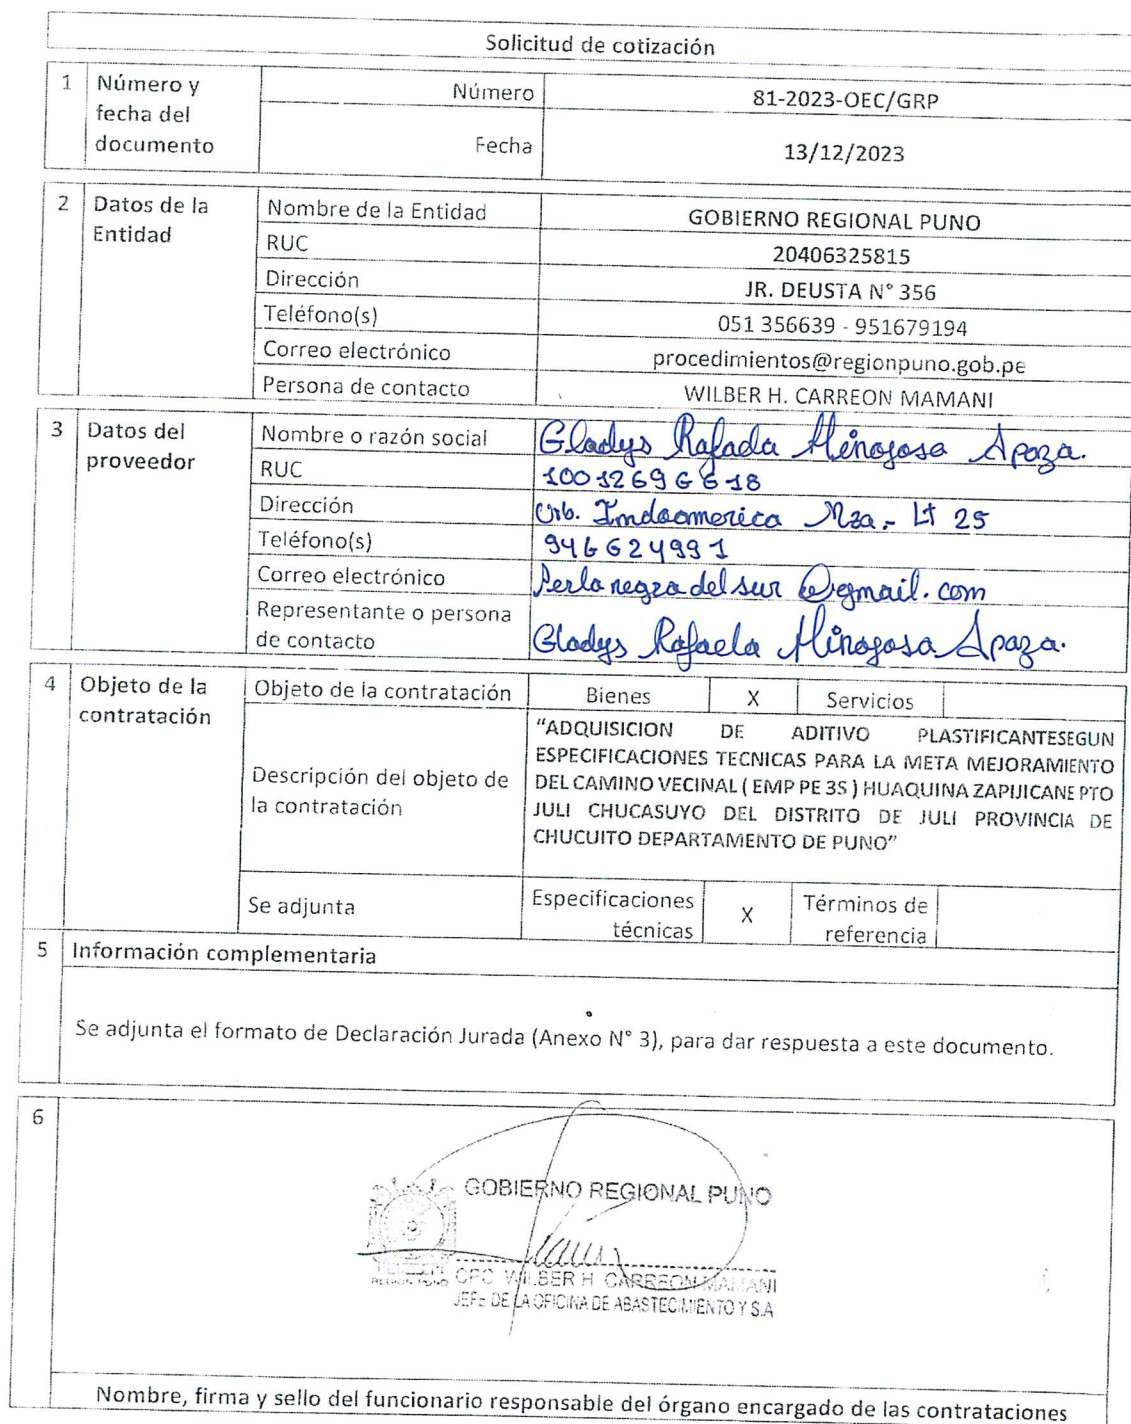 Solicitud de cotización
1 Número y fecha del documento
Número 81-2023-OEC/GRP
Fecha 13/12/2023
2 Datos de la Entidad
Nombre de la Entidad GOBIERNO REGIONAL PUNO
RUC 20406325815
Dirección JR. DEUSTA N° 356
Teléfono(s) 051 356639 - 951679194
Correo electrónico procedimientos@regionpuno.gob.pe
Persona de contacto WILBER H. CARREON MAMANI
3 Datos del proveedor
Nombre o razón social Gladys Rafaela Hinojosa Apaza.
RUC 10012696618
Dirección Urb. Indoamerica Mza - Lt 25
Teléfono(s) 946624991
Correo electrónico Perlanegradelsur@gmail.com
Representante o persona de contacto Gladys Rafaela Hinojosa Apaza.
4 Objeto de la contratación
Objeto de la contratación Bienes X Servicios
Descripción del objeto de la contratación
"ADQUISICION DE ADITIVO PLASTIFICANTESEGUN
ESPECIFICACIONES TECNICAS PARA LA META MEJORAMIENTO
DEL CAMINO VECINAL ( EMP PE 3S ) HUAQUINA ZAPIJICANE PTO
JULI CHUCASUYO DEL DISTRITO DE JULI PROVINCIA DE
CHUCUITO DEPARTAMENTO DE PUNO"
Se adjunta Especificaciones técnicas X Términos de referencia
5 Información complementaria
Se adjunta el formato de Declaración Jurada (Anexo N° 3), para dar respuesta a este documento.
6
GOBIERNO REGIONAL PUNO
REGION PUNO
CPC WILBER H CARREON MAMANI
JEFE DE LA OFICINA DE ABASTECIMIENTO Y S.A
Nombre, firma y sello del funcionario responsable del órgano encargado de las contrataciones